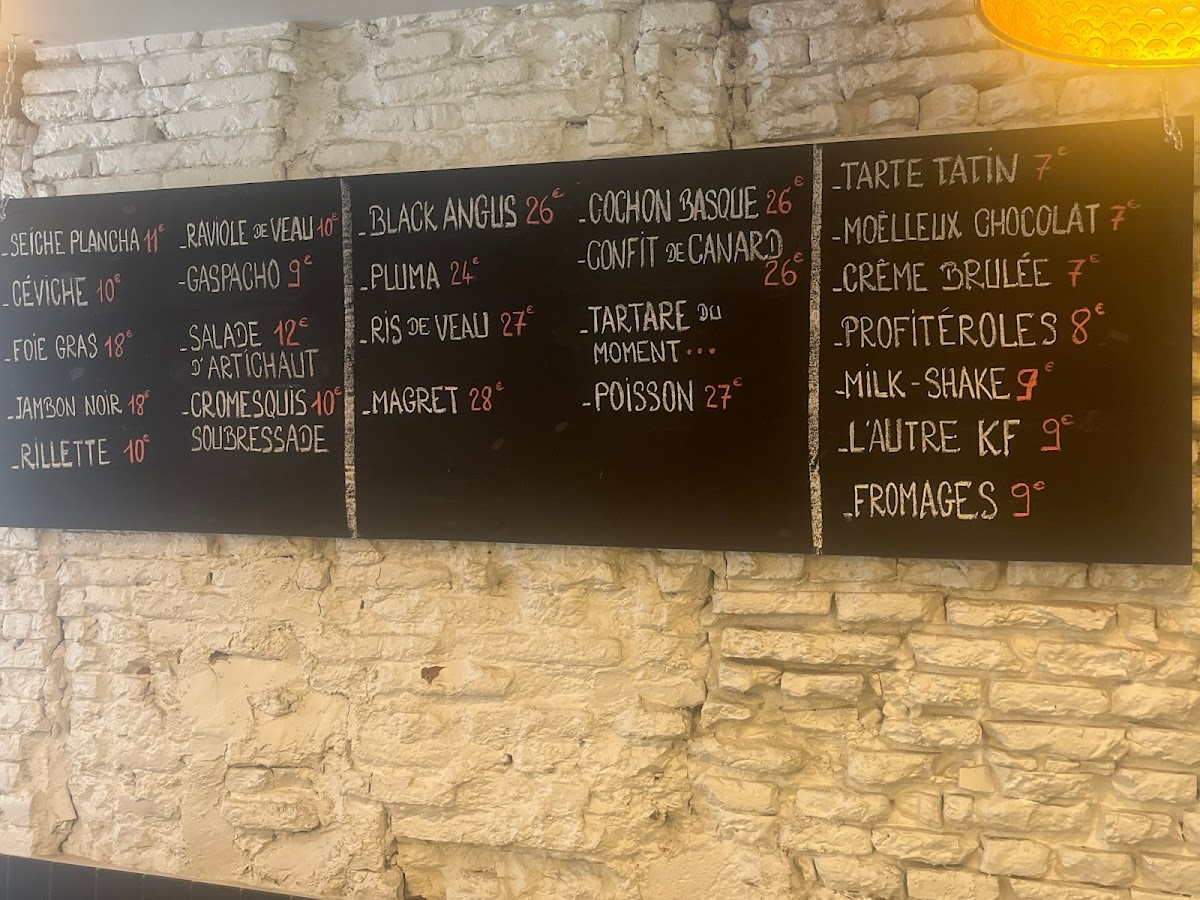 -SEICHE PLANCHA 11€
-CÉVICHE 10€
-FOIE GRAS 18€
-JAMBON NOIR 18€
-RILLETTE 10€
-RAVIOLE DE VEAU 10€
-GASPACHO 9€
-SALADE 12€
D'ARTICHAUT
-CROMESQUIS 10€
SOUBRESSADE
-BLACK ANGUS 26€
-PLUMA 24€
-RIS DE VEAU 27€
-MAGRET 28€
-COCHON BASQUE 26€
-CONFIT DE CANARD
26€
-TARTARE DU
MOMENT...
-POISSON 27€
-TARTE TATIN 7€
-MOËLLEUX CHOCOLAT 7€
-CRÊME BRULÉE 7€
-PROFITÉROLES 8€
-MILK-SHAKE 9€
-L'AUTRE KF 9€
-FROMAGES 9€